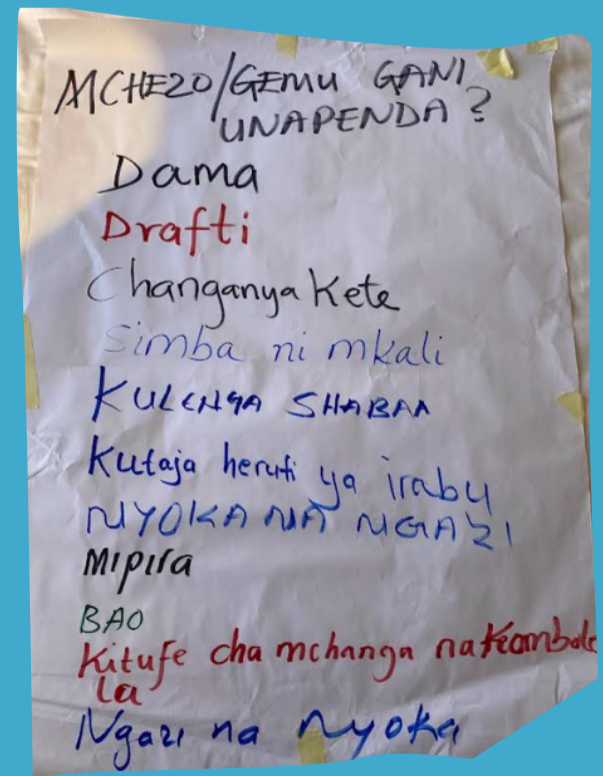 MCHEZO/GEMU GANI
UNAPENDA?
Dama
Drafti
Changanya Kete
Simba ni mkali
KULENGA SHABAA
Kutaja herufi ya irabu
NYOKA NA NGAZI
Mipira
BAO
Kitufe cha mchanga na kombole
la
Ngazi na Nyoka